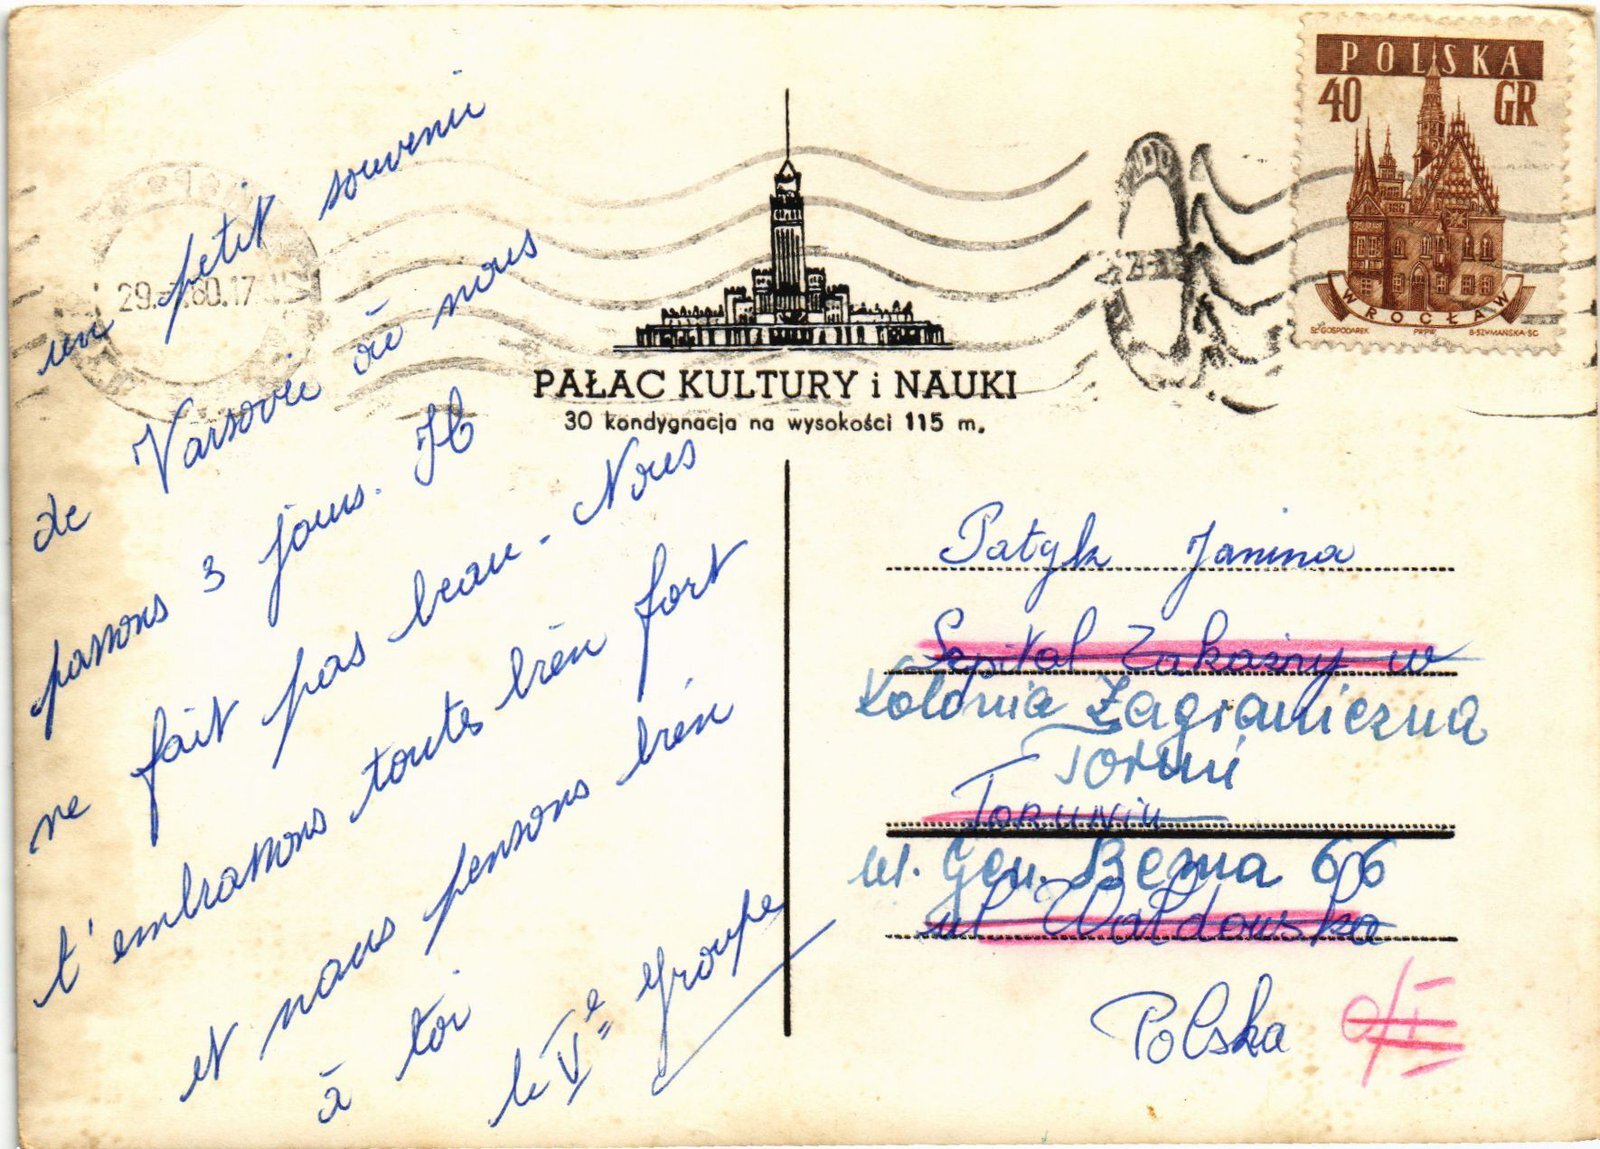 un petit souvenir
de Varsovie où nous
passons 3 jours. Il
ne fait pas beau - Nous
t'embrassons toutes bien fort
et nous pensons bien
à toi
le Ve Groupe
29. .60.17
PAŁAC KULTURY i NAUKI
30 kondygnacja na wysokości 115 m.
POLSKA
40 GR
WROCŁAW
SŁ GOSPODAREK PWPW B·SZYMAŃSKA·SC
Patyk Janina
Szpital Zakaźny w
Kolonia Zagraniczna
Toruń
Toruniu
ul. Gen. Bema 66
ul Wałdowska
Polska